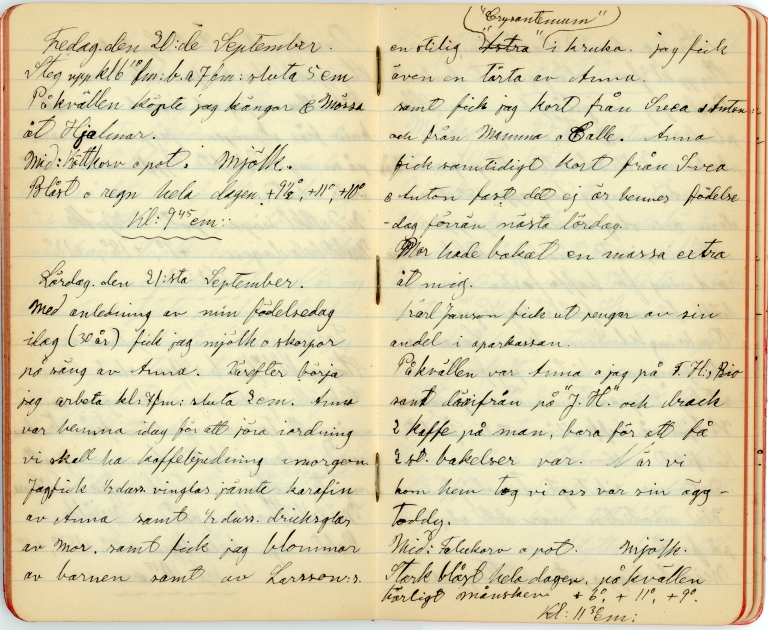 Fredag. den 20:de September.
Steg upp kl 6 10 fm: b. a 7 fm: sluta 5 em
På kvällen köpte jag kängor & Mössa
åt Hjalmar.
Mid: Köttkorv o pot. Mjölk.
Blåst o regn hela dagen. +9½°, +11°, +10°
Kl: 9 45 em::
Lördag. den 21:sta September.
Med anledning av min födelsedag
idag (30 år) fick jag mjölk o skorpor
på säng av Anna. Därefter börja
jag arbeta kl: 7 fm: sluta 2 em. Anna
var hemma idag för att jöra iordning
vi skall ha kaffebjudning imorgon
Jag fick ½ duss. vinglas jämte karafin
av Anna samt ½ duss. dricksglas
av Mor. samt fick jag blommor
av barnen samt av Larsson:s.
"Crysantemum"
en stilig "Astra" i kruka. jag fick
även en tårta av Anna.
samt fick jag kort från Svea o Anton:
och från Mamma o Calle. Anna
fick samtidigt kort från Svea
o Anton fast det ej är hennes födelse
-dag förrän nästa lördag.
Mor hade bakat en massa extra
åt mig.
Karl Janson fick ut pengar av sin
andel i sparkassan.
På kvällen var Anna o jag på F. H:s Bio
samt därifrån på "J. H." och drack
2 kaffe på man, bara för att få
2 st. bakelser var. När vi
kom hem tog vi oss var sin ägg-
toddy.
Mid: Falukorv o pot. Mjölk.
Stark blåst hela dagen, på kvällen
härligt månsken +6°, +11°, +9°.
Kl: 11 3 Em: